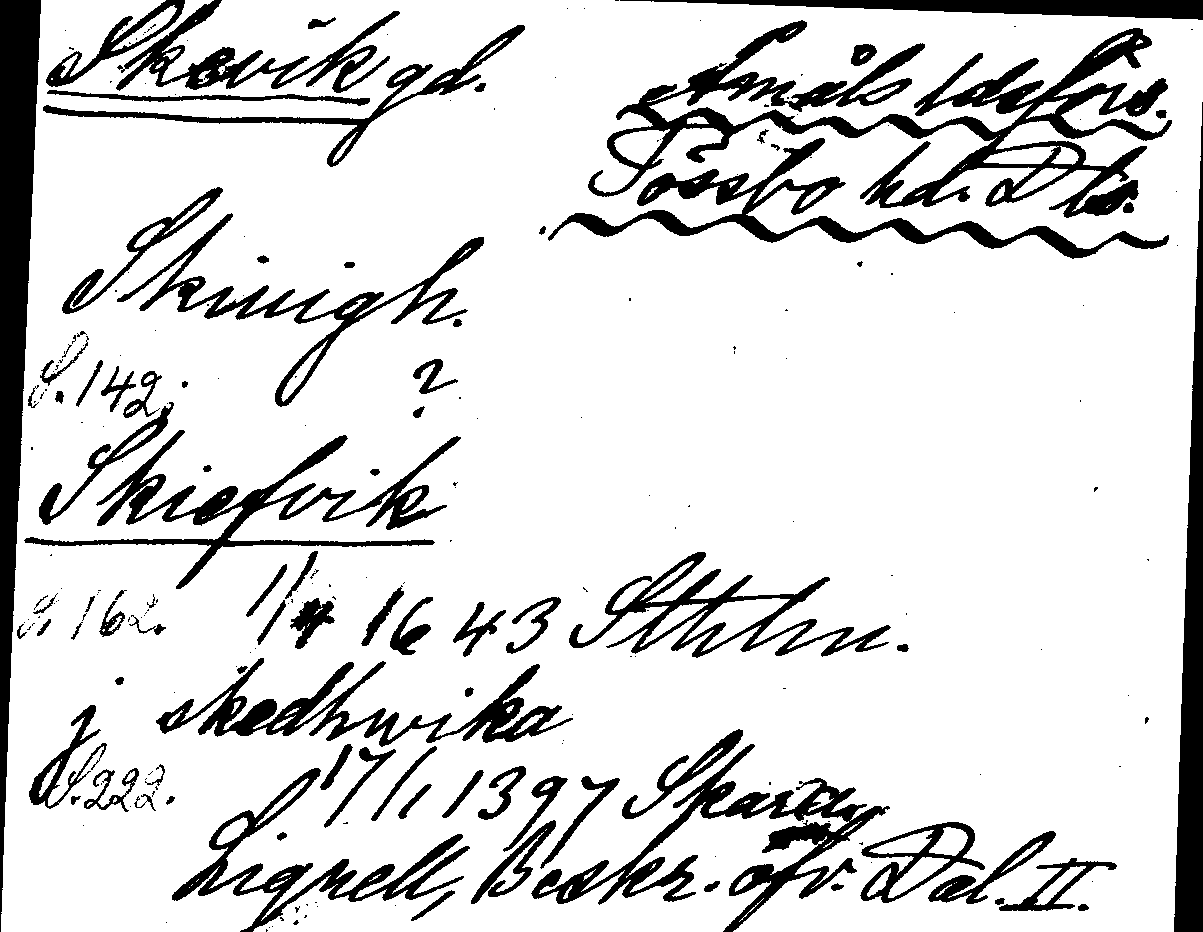 Skevik gd.
Åmåls ldsförs.
Tössbo hd. Dls.
Skinigh.
S. 142. ?
Skiefvik
S. 162. 1/4 1643 Sthlm.
j skedhwika
S. 222. S. 17/1 1397 Skara
Lignell, Beskr. öfv. Dal. II.